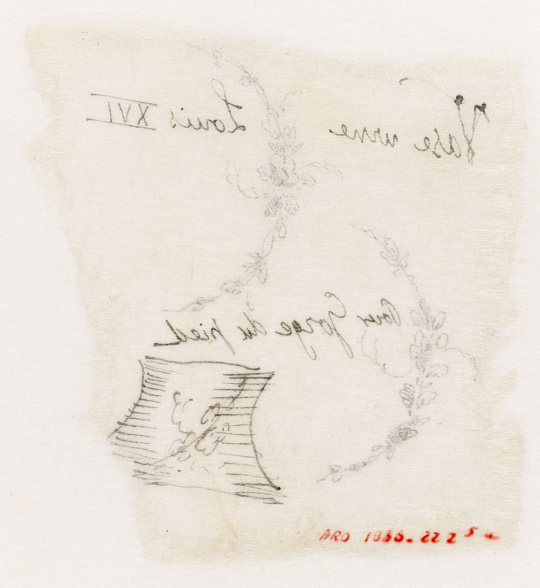 Vase urne Louis XVI
Pour Gorge du pied
ARO 1986. 22 2